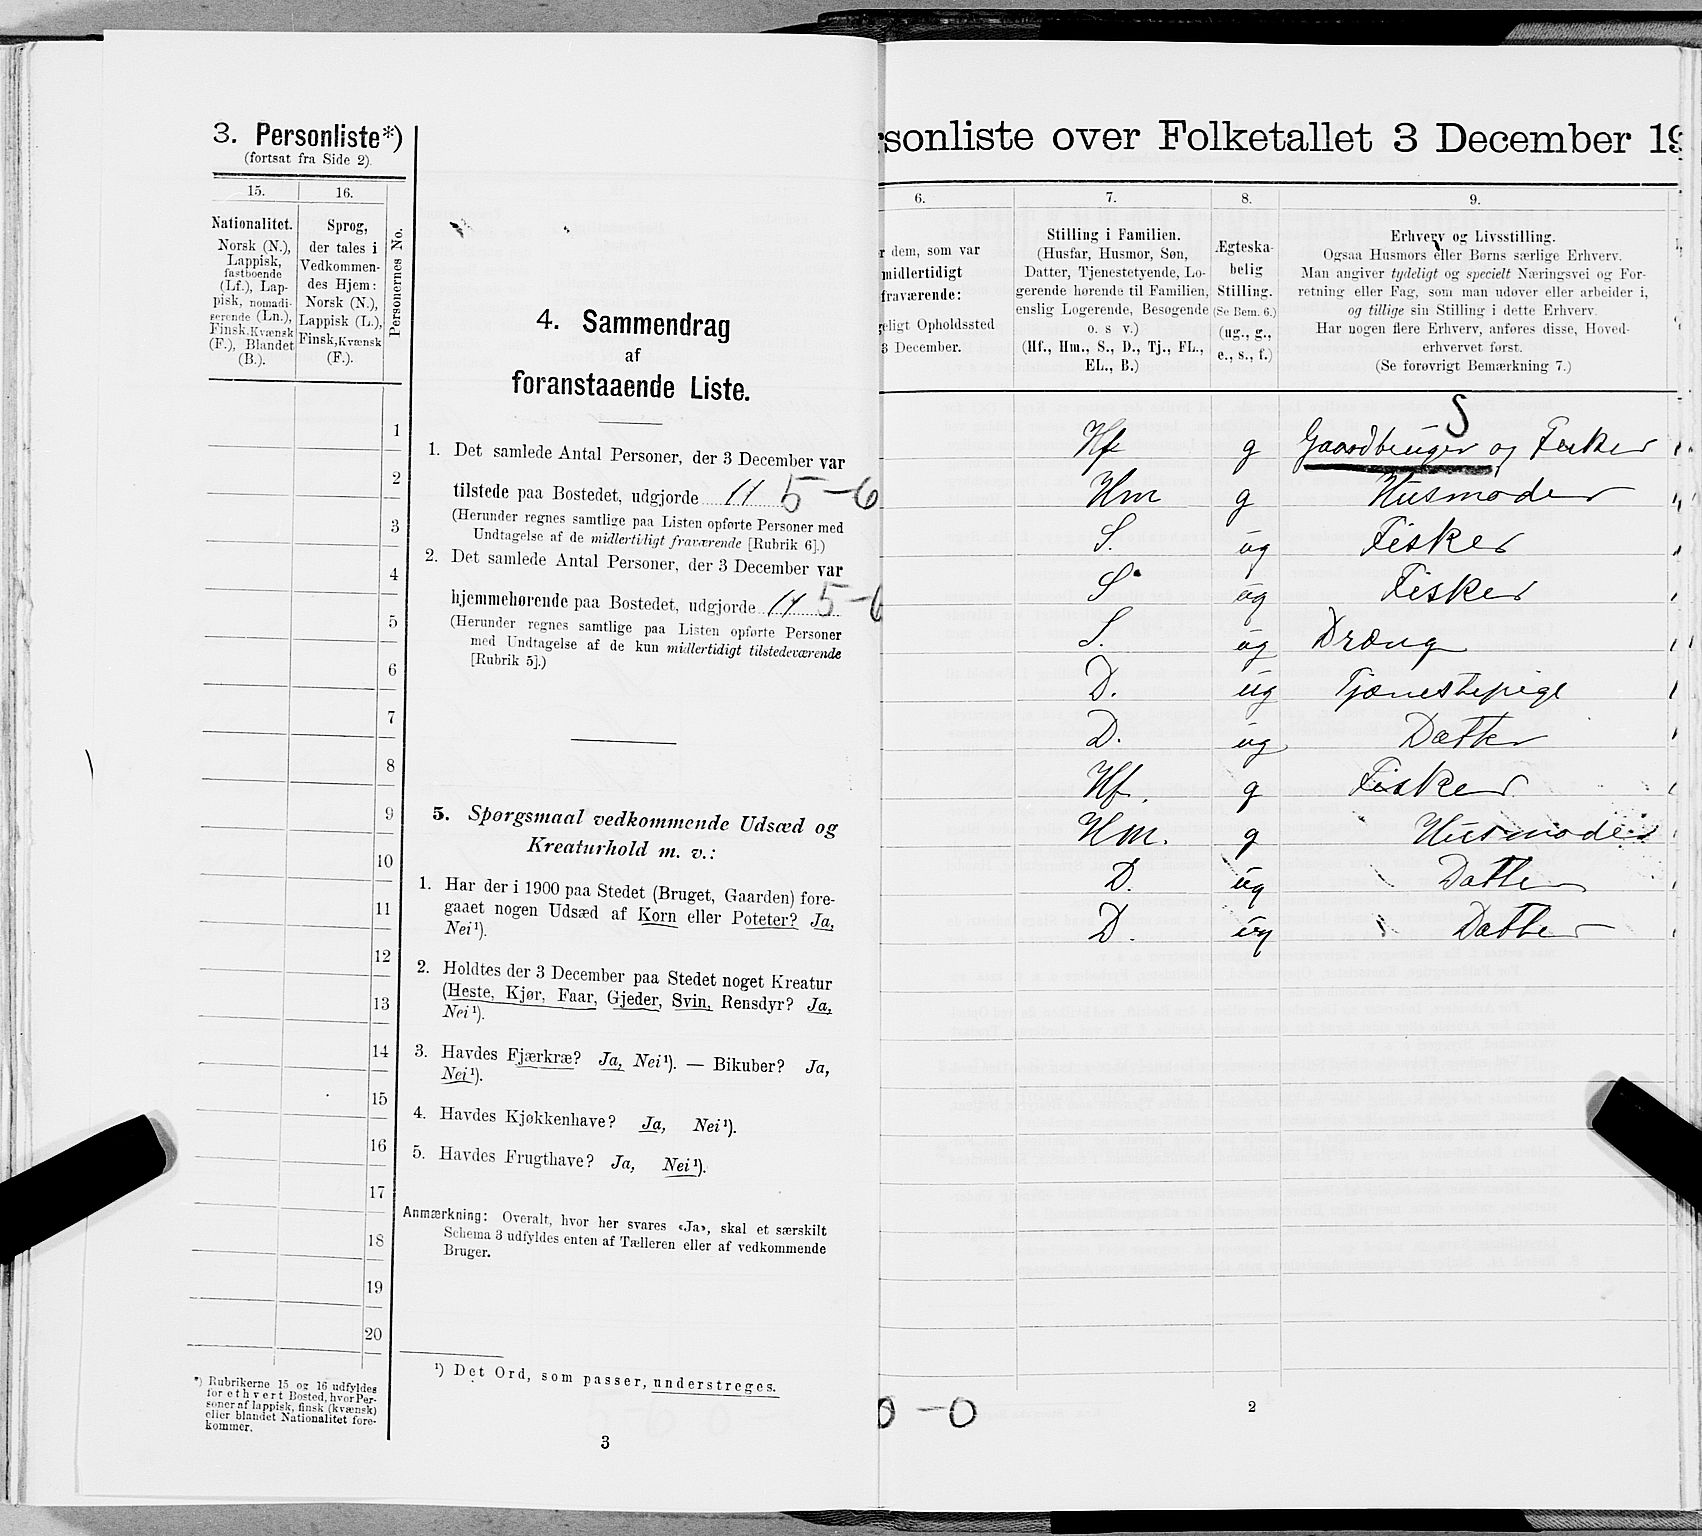 3. Personliste*)
(fortsat fra Side 2).
15.
16.
Nationalitet.
Norsk (N.),
Lappisk,
fastboende
(Lf.), Lap-
pisk, nomadi-
serende (Ln.),
Finsk, Kvænsk
(F.), Blandet
(B.).
Sprog,
der tales i
Vedkommen-
des Hjem:
Norsk (N.),
Lappisk (L.),
Finsk, Kvænsk
(F.).
Personernes No.
1
2
3
4
5
6
7
8
9
10
11
12
13
14
15
16
17
18
19
20
*) Rubrikerne 15 og 16 udfyldes
for ethvert Bosted, hvor Per-
soner af lappisk, finsk (kvænsk)
eller blandet Nationalitet fore-
kommer.
4. Sammendrag
af
foranstaaende Liste.
1. Det samlede Antal Personer, der 3 December var
tilstede paa Bostedet, udgjorde 11 5-6
(Herunder regnes samtlige paa Listen opførte Personer med
Undtagelse af de midlertidigt fraværende [Rubrik 6].)
2. Det samlede Antal Personer, der 3 December var
hjemmehørende paa Bostedet, udgjorde 11 5-6
(Herunder regnes samtlige paa Listen opførte Personer
med Undtagelse af de kun midlertidigt tilstedeværende
[Rubrik 5].)
5. Spørgsmaal vedkommende Udsæd og
Kreaturhold m. v.:
1. Har der i 1900 paa Stedet (Bruget, Gaarden) fore-
gaaet nogen Udsæd af Korn eller Poteter? Ja,
Nei¹).
2. Holdtes der 3 December paa Stedet noget Kreatur
(Heste, Kjør, Faar, Gjeder, Svin, Rensdyr? Ja,
Nei¹).
3. Havdes Fjærkræ? Ja, Nei¹). — Bikuber? Ja,
Nei¹).
4. Havdes Kjøkkenhave? Ja, Nei¹).
5. Havdes Frugthave? Ja, Nei¹).
Anmærkning: Overalt, hvor her svares «Ja», skal et særskilt
Schema 3 udfyldes enten af Tælleren eller af vedkommende
Bruger.
¹) Det Ord, som passer, understreges.
3
rsonliste over Folketallet 3 December 19
6.
7.
8.
9.
r dem, som var
midlertidigt
fraværende:
geligt Opholdssted
3 December.
Stilling i Familien.
(Husfar, Husmor, Søn,
Datter, Tjenestetyende, Lo-
gerende hørende til Familien,
enslig Logerende, Besøgende
o. s v.)
(Hf., Hm., S., D., Tj., FL.,
EL., B.)
Ægteska-
belig
Stilling.
(Se Bem. 6.)
(ug., g.,
e., s., f.)
Erhverv og Livsstilling.
Ogsaa Husmors eller Børns særlige Erhverv.
Man angiver tydeligt og specielt Næringsvei og For-
retning eller Fag, som man udøver eller arbeider i,
og tillige sin Stilling i dette Erhverv.
Har nogen flere Erhverv, anføres disse, Hoved-
erhvervet først.
(Se forøvrigt Bemærkning 7.)
S
Hf g Gaardbruger og Fisker
Hm g Husmoder
S. ug Fisker
S ug Fisker
S. ug Dræng
D. ug Tjænestepige
D. ug Datter
Hf. g Fisker
Hm. g Husmoder
D. ug Datter
D. ug Datter
0-0
2